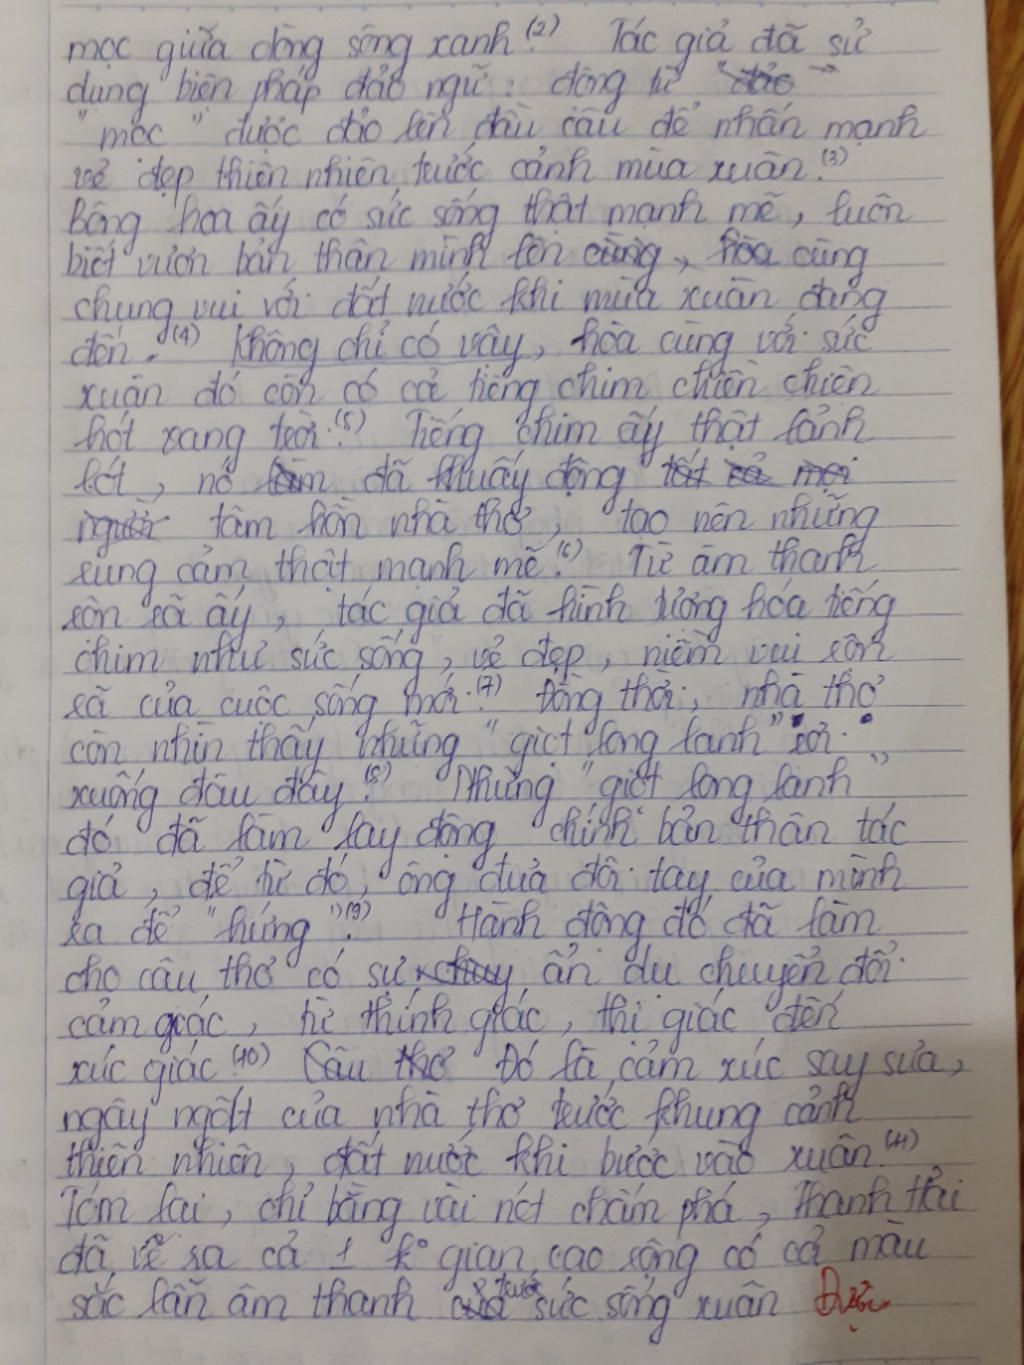 mọc giữa dòng sông xanh.(2) Tác giả đã sử
dụng biện pháp đảo ngữ: động từ "đảo
"mọc" được đảo lên đầu câu để nhấn mạnh
vẻ đẹp thiên nhiên trước cảnh mùa xuân.(3)
Bông hoa ấy có sức sống thật mạnh mẽ, luôn
biết vươn bản thân mình lên cùng, hòa cùng
chung vui với đất nước khi mùa xuân đang
đến.(4) Không chỉ có vậy, hòa cùng với sức
xuân đó còn có cả tiếng chim chiền chiện
hót vang trời.(5) Tiếng chim ấy thật lảnh
lót, nó làm đã khuấy động tất cả mọi
người tâm hồn nhà thơ, tạo nên những
rung cảm thật mạnh mẽ.(6) Từ âm thanh
rộn rã ấy, tác giả đã hình tượng hóa tiếng
chim như sức sống, vẻ đẹp, niềm vui rộn
rã của cuộc sống mới.(7) Đồng thời, nhà thơ
còn nhìn thấy những "giọt long lanh" rơi
xuống đâu đây.(8) Những "giọt long lanh"
đó đã làm lay động chính bản thân tác
giả, để từ đó, ông đưa đôi tay của mình
ra để "hứng".(9) Hành động đó đã làm
cho câu thơ có sự chuy ẩn dụ chuyển đổi
cảm giác, từ thính giác, thị giác đến
xúc giác.(10) Câu thơ Đó là cảm xúc say sưa,
ngây ngất của nhà thơ trước khung cảnh
thiên nhiên, đất nước khi bước vào xuân.(11)
Tóm lại, chỉ bằng vài nét chấm phá, Thanh Hải
đã vẽ ra cả 1 k° gian cao rộng có cả màu
sắc lẫn âm thanh của trước sức sống xuân Được